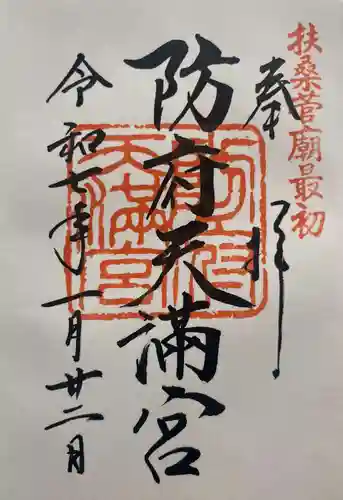 扶桑菅廟最初
奉拝
防府天満宮
防府天満宮
令和七年一月廿二月